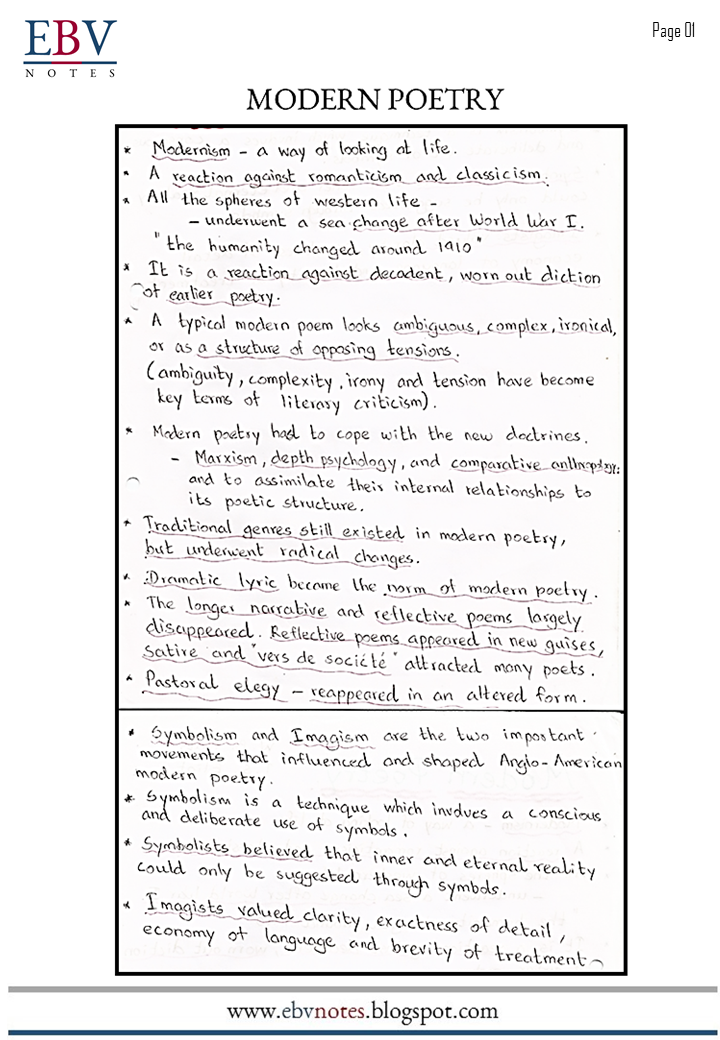 EBV
NOTES
Page 01
MODERN POETRY
* Modernism - a way of looking at life.
* A reaction against romanticism and classicism.
* All the spheres of western life -
- underwent a sea change after World War I.
"the humanity changed around 1910"
* It is a reaction against decadent, worn out diction
of earlier poetry.
* A typical modern poem looks ambiguous, complex, ironical,
or as a structure of opposing tensions.
(ambiguity, complexity, irony and tension have become
key terms of literary criticism).
* Modern poetry had to cope with the new doctrines.
- Marxism, depth psychology, and comparative
and to assimilate their internal relationships to
its poetic structure.
* Traditional genres still existed in modern poetry,
but underwent radical changes.
* Dramatic lyric became the norm of modern poetry.
* The longer narrative and reflective poems largely
disappeared. Reflective poems appeared in new guises,
satire and "vers de société" attracted many poets.
* Pastoral elegy - reappeared in an altered form.
* Symbolism and Imagism are the two important
movements that influenced and shaped Anglo-American
modern poetry.
* Symbolism is a technique which involves a conscious
and deliberate use of symbols.
* Symbolists believed that inner and eternal reality
could only be suggested through symbols.
* Imagists valued clarity, exactness of detail,
economy of language and brevity of treatment
www.ebvnotes.blogspot.com